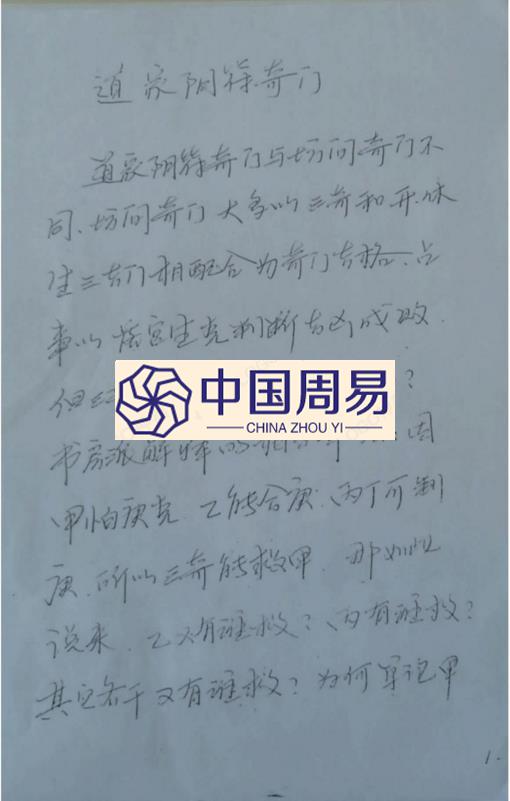 道家阴符奇门
道家阴符奇门与坊间奇门不
同、坊间奇门大多以三奇和开休
生三吉门相配合为奇门吉格、占
事以落宫生克判断吉凶成败.
但
?
中国周易
CHINA ZHOU YI
书房派解释的
因
甲怕庚克.乙能合庚、丙丁可制
庚.所以三奇能救甲.那如此
说来.乙又有谁救?丙有谁救?
其它各干又有谁救?为何单说甲
1.